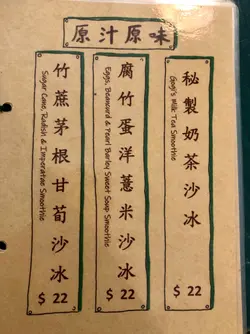 原汁原味
秘製奶茶沙冰
Gogi's Milk Tea Smoothie
$ 22
腐竹蛋洋薏米沙冰
Eggs, Beancurd & Pearl Barley Sweet Soup Smoothie
$ 22
竹蔗茅根甘荀沙冰
Sugar Cane, Radish & Imperatae Smoothie
$ 22